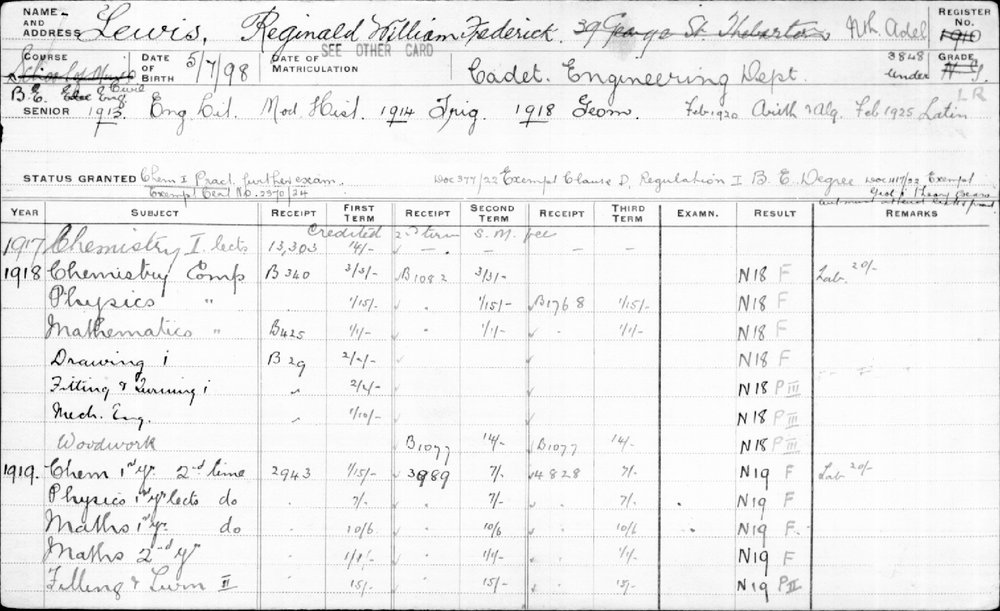 NAME- AND ADDRESS Lewis, Reginald William Frederick. 39 George St. Thebarton Nth Adel REGISTER NO. 1910
SEE OTHER CARD
COURSE School of Mines DATE OF BIRTH 5/7/98 DATE OF MATRICULATION Cadet. Engineering Dept. 3848 under GRADE N.G.
B.E. Elec Eng Civil LR
SENIOR 1913. Eng Lit. Mod. Hist. 1914 Trig. 1918 Geom. Feb 1920 Arith & Alg. Feb 1925 Latin
STATUS GRANTED Chem I Pract. further exam. Doc 377/22 Exempt Clause D, Regulation I B.E. Degree Doc 417/22 Exempt
Exempt Cert No. 2370/24
YEAR SUBJECT RECEIPT FIRST TERM RECEIPT SECOND TERM RECEIPT THIRD TERM EXAMN. RESULT REMARKS
Credited 2nd term S.M. fee
1917 Chemistry I. lects 13,303 14/- - - - -
1918 Chemistry Comp B 340 3/3/- B1082 3/3/- N18 F Lab. 20/-
Physics " 1/15/- 1/15/- B1768 1/15/- N18 F
Mathematics " B425 1/1/- 1/1/- 1/1/- N18 F
Drawing i B 29 2/2/- N18 F
Fitting & Turning i " 2/2/- N18 P III
Mech. Eng. " 1/10/- N18 P III
Woodwork B1077 14/- B1077 14/- N18 P III
1919. Chem 1st yr. 2nd time 2943 1/15/- 3989 7/- 4828 7/- N19 F Lab 20/-
Physics 1st yr lects do 7/- 7/- 7/- N19 F
Maths 1st yr. do 10/6 10/6 10/6 N19 F.
Maths 2nd yr 1/1/- 1/1/- 1/1/- N19 F
Fitting & Turn II 15/- 15/- 15/- N19 P II